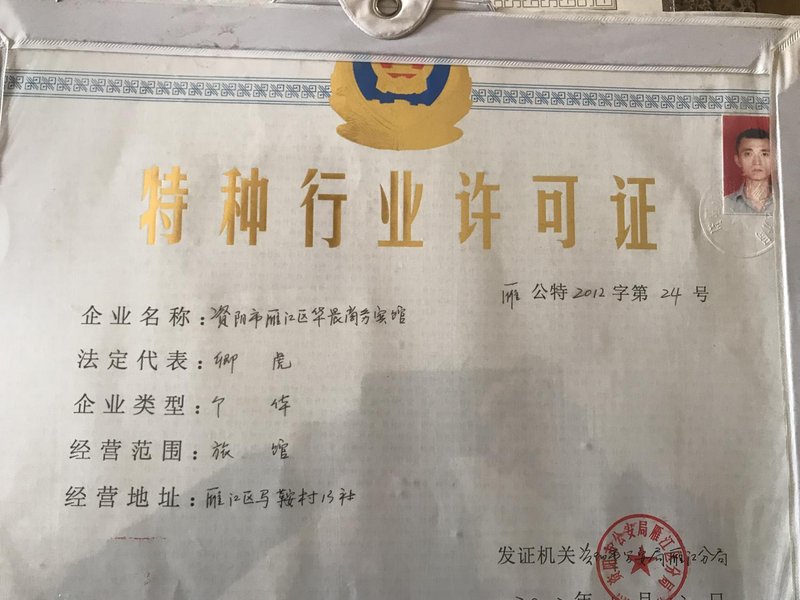 特种行业许可证
雁公特2012字第24号
企业名称：资阳市雁江区华晨商务宾馆
法定代表：卿虎
企业类型：个体
经营范围：旅馆
经营地址：雁江区马鞍村15社
发证机关 资阳市公安局雁江分局